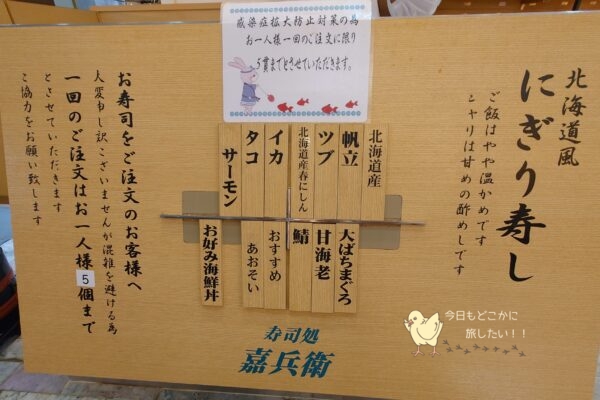 感染症拡大防止対策の為
お一人様一回のご注文に限り
5貫までとさせていただきます。
北海道風
にぎり寿し
ご飯はやや温かめです
シャリは甘めの酢めしです
北海道産
帆立
ツブ
北海道産春にしん
イカ
タコ
サーモン
大ばちまぐろ
甘海老
鯖
おすすめ
あおそい
お好み海鮮丼
お寿司をご注文のお客様へ
大変申し訳ございませんが混雑を避ける為
一回のご注文はお一人様5個まで
とさせていただきます
ご協力をお願い致します
寿司処
嘉兵衛
今日もどこかに
旅したい!!